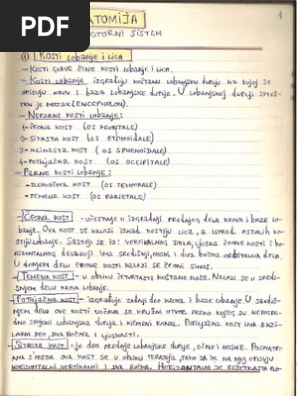 PDF
1
ANATOMIJA
MOTORNI SISTEM
① KOSTI LOBANJE I LICA
- KOSTI GLAVE ČINE KOSTI LOBANJE I LICA.
- KOSTI LOBANJE IZGRAĐUJU KOŠTANU LOBANJSKU DUPLJU NA KOJOJ SE
OPISUJU KROV I BAZA LOBANJSKE DUPLJE. U LOBANJSKOJ DUPLJI SMEŠ-
TEN JE MOZAK (ENCEPHALON).
- NEPARNE KOSTI LOBANJE:
1- ČEONA KOST (OS FRONTALE)
2- SITASTA KOST (OS ETMOIDALE)
3- KLINASTA KOST (OS SPHENOIDALE)
4- POTILJAČNA KOST (OS OCCIPITALE)
- PARNE KOSTI LOBANJE:
- SLEPOOČNA KOST (OS TEMPORALE)
- TEMENA KOST (OS PARIETALE)
- ČEONA KOST - UČESTVUJE U IZGRADNJI PREDNJEG DELA KROVA I BAZE LO-
BANJE. OVA KOST SE NALAZI IZNAD KOSTIJU LICA, A ISPRED OSTALIH KO-
STIJU LOBANJE. SASTOJI SE IZ: VERTIKALNOG DELA, LJUSKA ČEONE KOSTI I HO-
RIZONTALNOG DELA KOJI IMA SREDIŠNJI, NOSNI I DVA BOČNA ORBITALNA DELA.
U DONJEM DELU ČEONE KOSTI NALAZI SE ČEONI SINUS.
- TEMENA KOST - U OBLIKU ČETVRTASTE KOŠTANE PLOČE. NALAZI SE U SRED-
NJEM DELU KROVA LOBANJE.
- POTILJAČNA KOST - IZGRAĐUJE ZADNJI DEO KROVA I BAZE LOBANJE. U SREDI-
NJEM DELU OVE KOSTI UOČAVA SE KRUŽNI OTVOR PREKO KOJEG SU NEPOSRE-
DNO SPOJENI LOBANJSKA DUPLJA I KIČMENI KANAL. POTILJAČNA KOST IMA BAZI-
LARNI DEO, DVA BOČNA I LJUSKASTI.
- SITASTA KOST - JE DEO PREDNJE LOBANJSKE DUPLJE, OČNE I NOSNE. POSMATRA-
NA SPREDA OVA KOST JE U OBLIKU TERAZIJA, TAKO DA SE NA NJOJ OPISUJU
HORIZONTALNI VERTIKALNI I DVA BOČNA. HORIZONTALNI JE REŠETKASTA PLO-